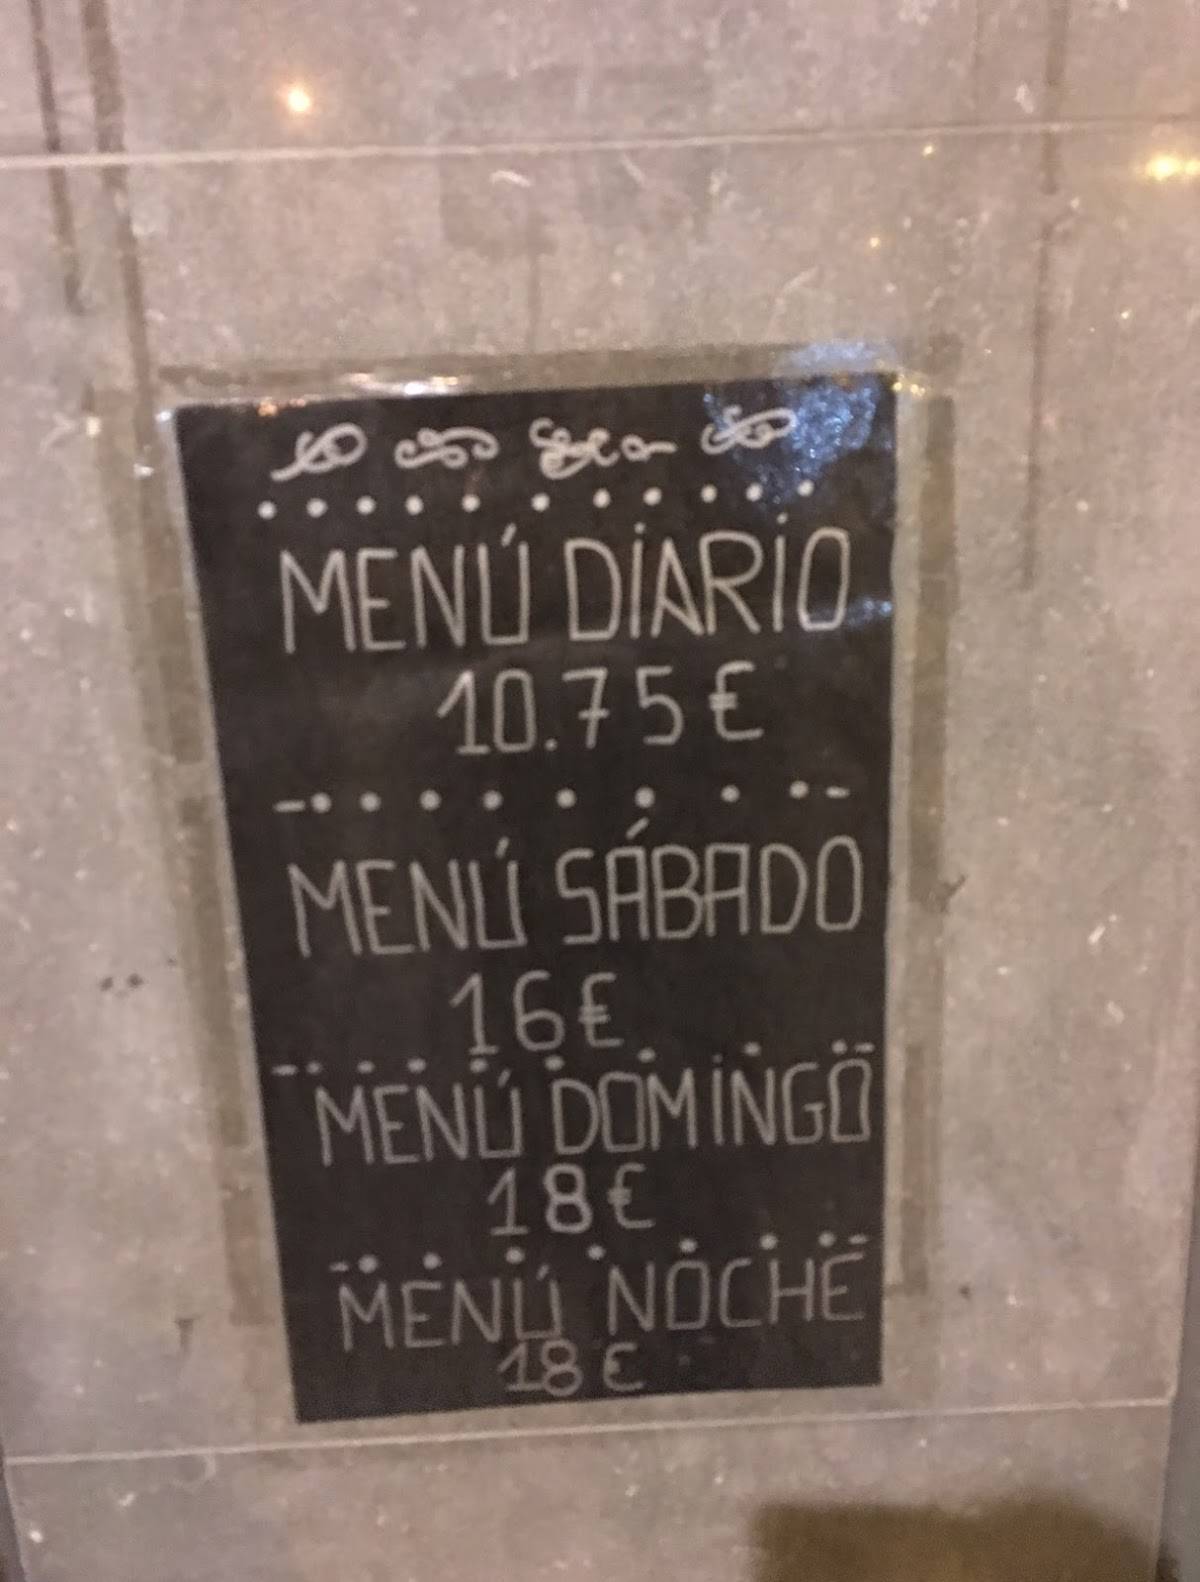 MENÚ DIARIO
10.75€
MENÚ SÁBADO
16€
MENÚ DOMINGO
18€
MENÚ NOCHE
18€